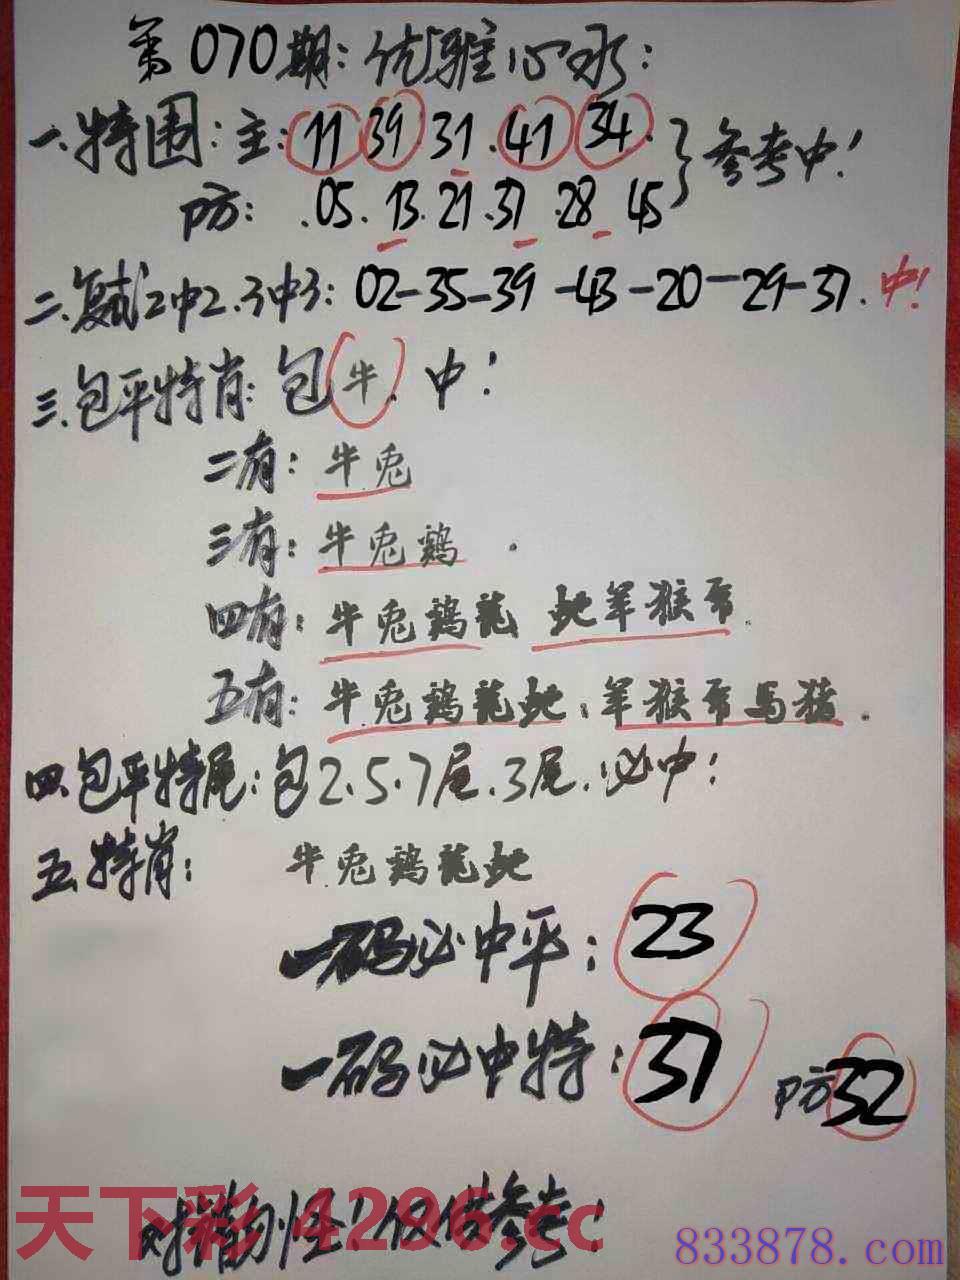 第070期:优雅心水:
一.特围:主:11 39 31.41 34.
参考中!
防:.05.13.21.37.28 45
二.复试2中2.3中3:02-35-39-43-20-29-37.中!
三.包平特肖:包牛.中!
二有:牛兔
三有:牛兔鷄.
四有:牛兔鷄龍 蛇羊猴
五有:牛兔鷄龍蛇:羊猴 馬猪.
四.包平特尾:包2.5.7尾.3尾.必中!
五.特肖: 牛兔鷄龍蛇
一码必中平:23
一码必中特:37 防32
对错勿怪!仅供参考!
天下彩 4296.cc
833878.com